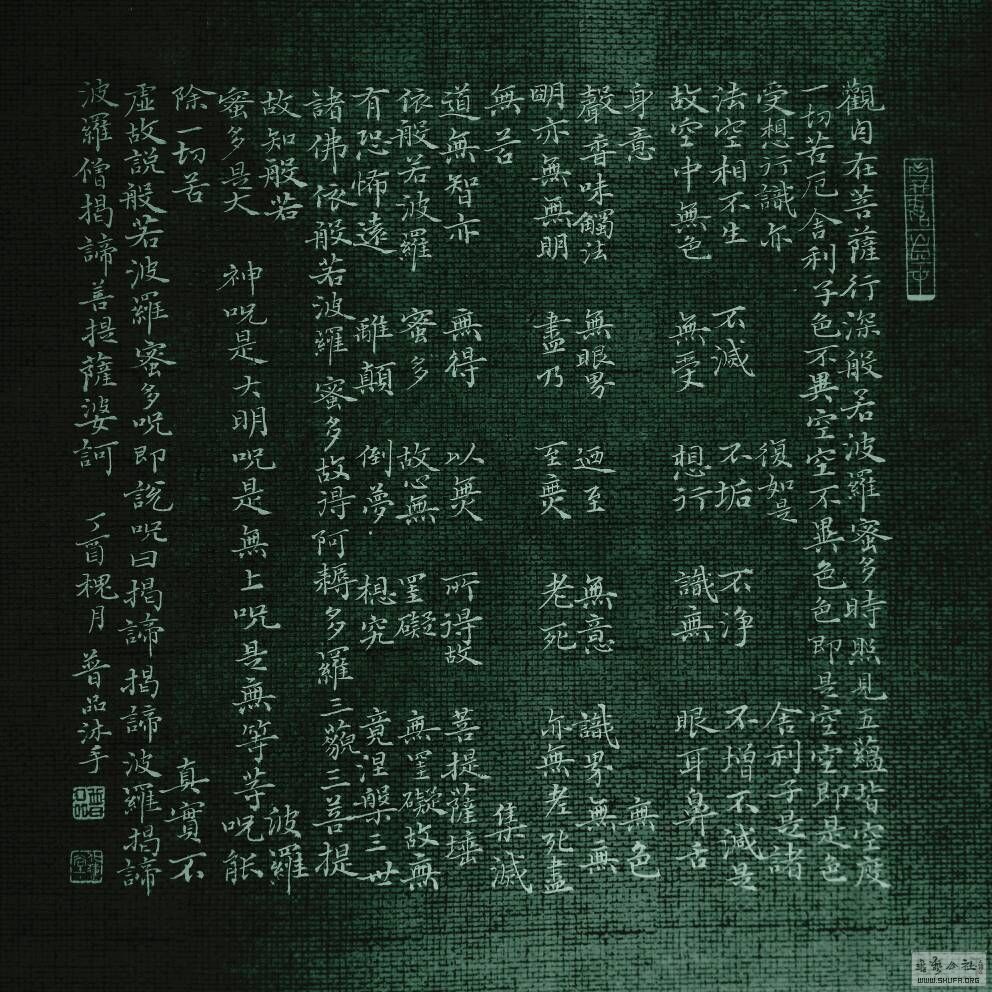 觀自在菩薩行深般若波羅蜜多時照見五蘊皆空度
一切苦厄舍利子色不異空空不異色色即是空空即是色
受想行識亦復如是舍利子是諸
法空相不生不減不垢不净不增不減是
故空中無色無受想行識無眼耳鼻舌
身意無色
聲香味觸法無眼界迺至無意識界無無
明亦無無明盡乃至無老死亦無老死盡
無苦集滅
道無智亦無得以無所得故菩提薩埵
依般若波羅蜜多故心無罣礙無罣礙故無
有恐怖遠離顛倒夢想究竟涅槃三世
諸佛依般若波羅蜜多故得阿耨多羅三藐三菩提
故知般若波羅
蜜多是大神呪是大明呪是無上呪是無等等呪能
除一切苦真實不
虛故説般若波羅蜜多呪即説呪曰揭諦揭諦波羅揭諦
波羅僧揭諦菩提薩婆訶 丁酉槐月 普品沐手
WWW.SHUFA.ORG